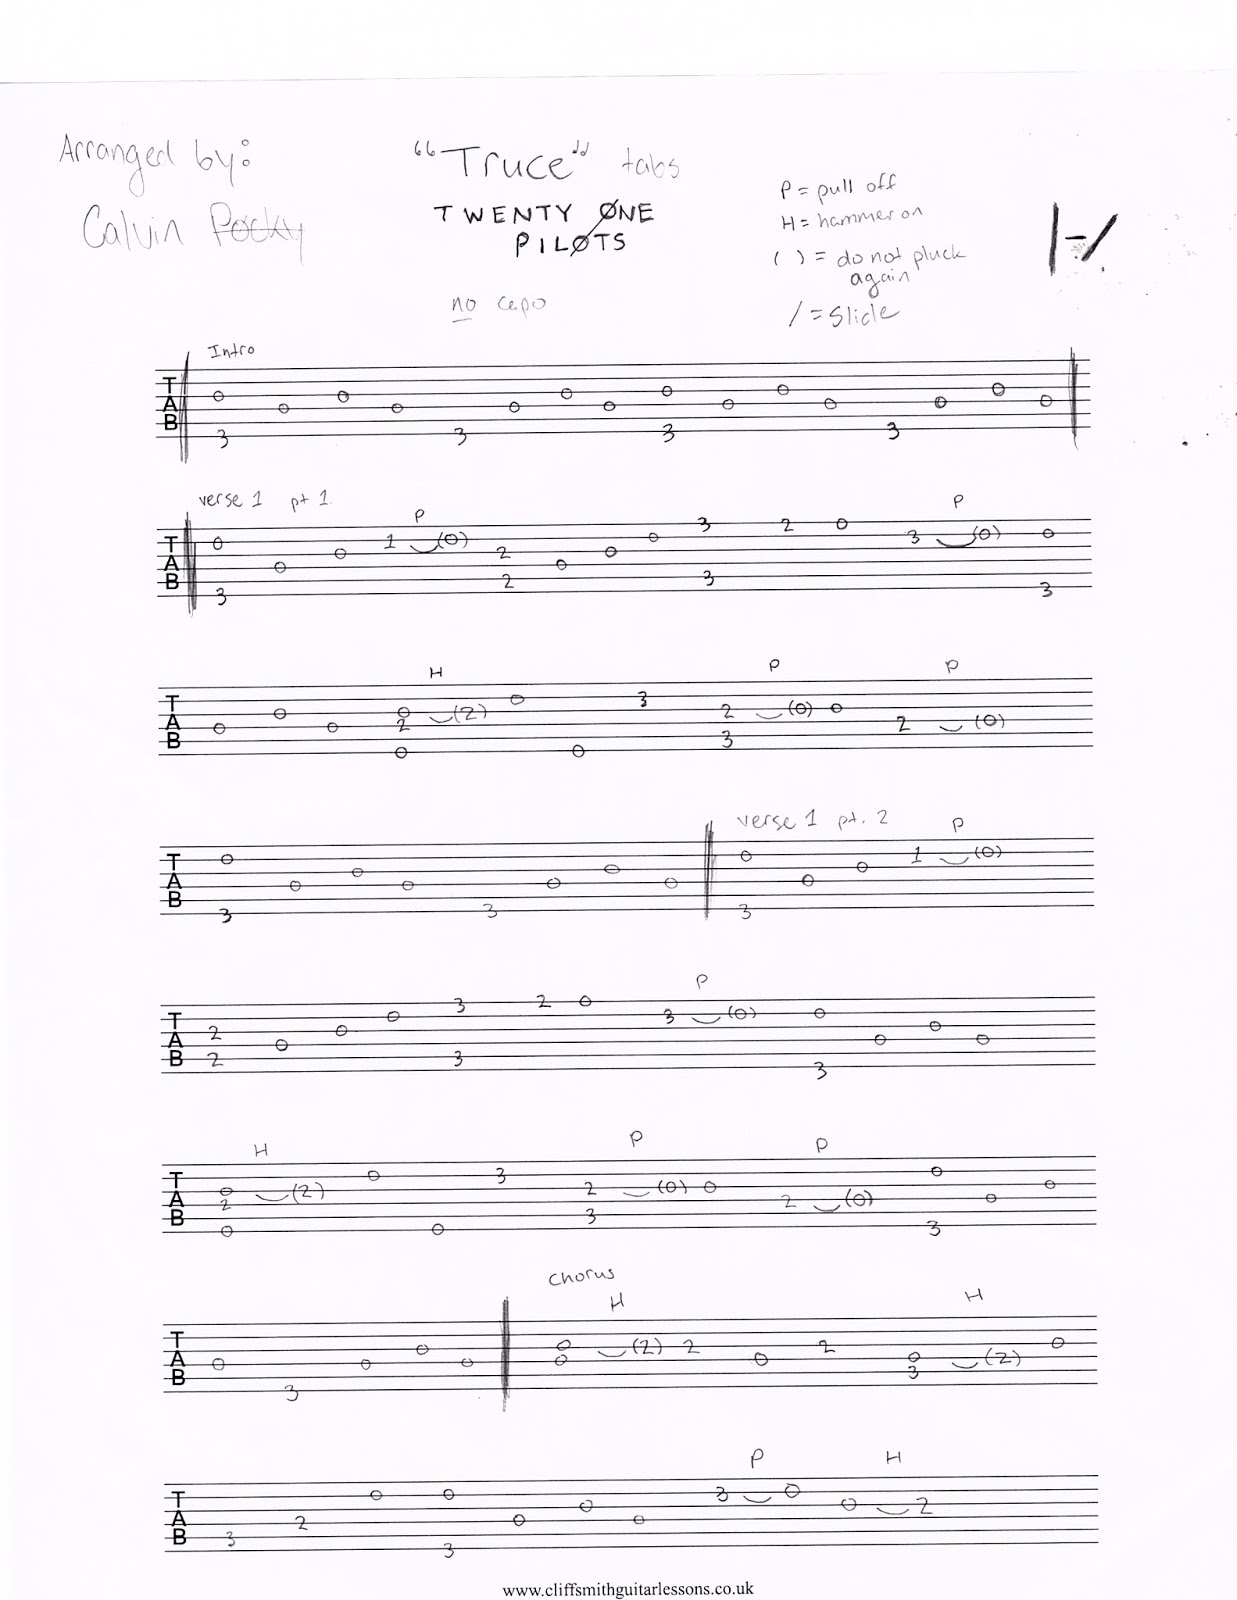 Arranged by:
Calvin Pocky
"Truce" tabs
TWENTY ØNE
PILØTS
no capo
P = pull off
H = hammer on
( ) = do not pluck
again
/ = Slide
|-/
Intro
TAB 0 3 0 0 0 3 0 0 0 0 3 0 0 0 3 0 0 0
verse 1 pt 1.
P P
TAB 0 3 0 0 1 (0) 2 2 0 0 0 3 3 2 0 3 (0) 0 3
H P P
TAB 0 0 0 0 2 0 (2) 0 0 3 2 3 (0) 0 2 (0)
verse 1 pt. 2
P
TAB 0 3 0 0 0 3 0 0 0 0 3 0 0 1 (0)
P
TAB 2 2 0 0 0 3 3 2 0 3 (0) 0 3 0 0 0
H P P
TAB 0 2 0 (2) 0 0 3 2 3 (0) 0 2 (0) 0 3 0 0
Chorus
H H
TAB 0 3 0 0 0 0 0 (2) 2 0 2 0 3 (2) 0
P H
TAB 3 2 0 0 3 0 0 0 3 0 0 2
www.cliffsmithguitarlessons.co.uk